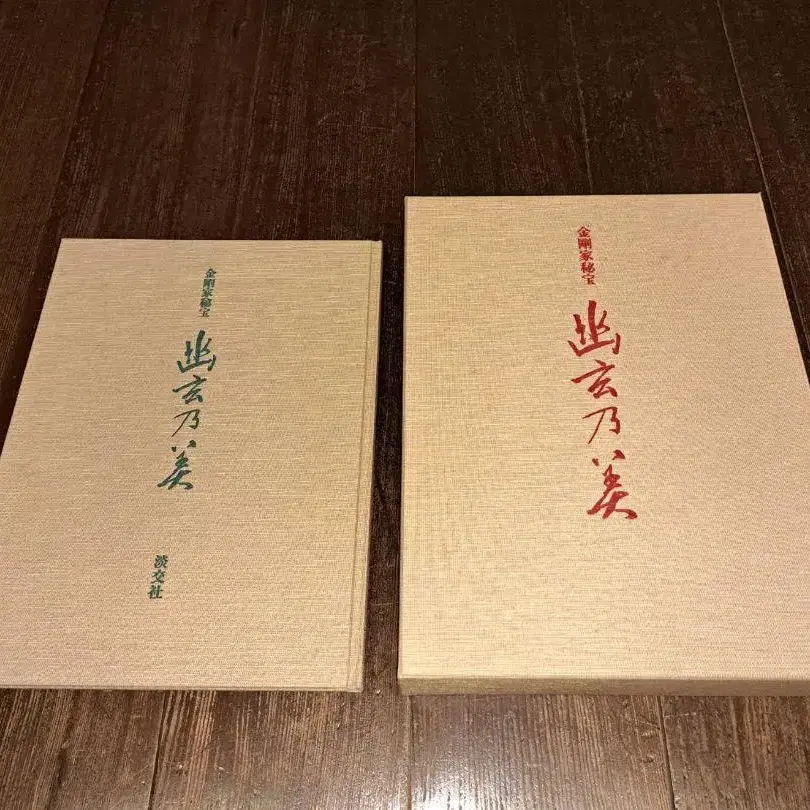 金剛家秘宝
幽玄乃美
淡交社
金剛家秘宝
幽玄乃美